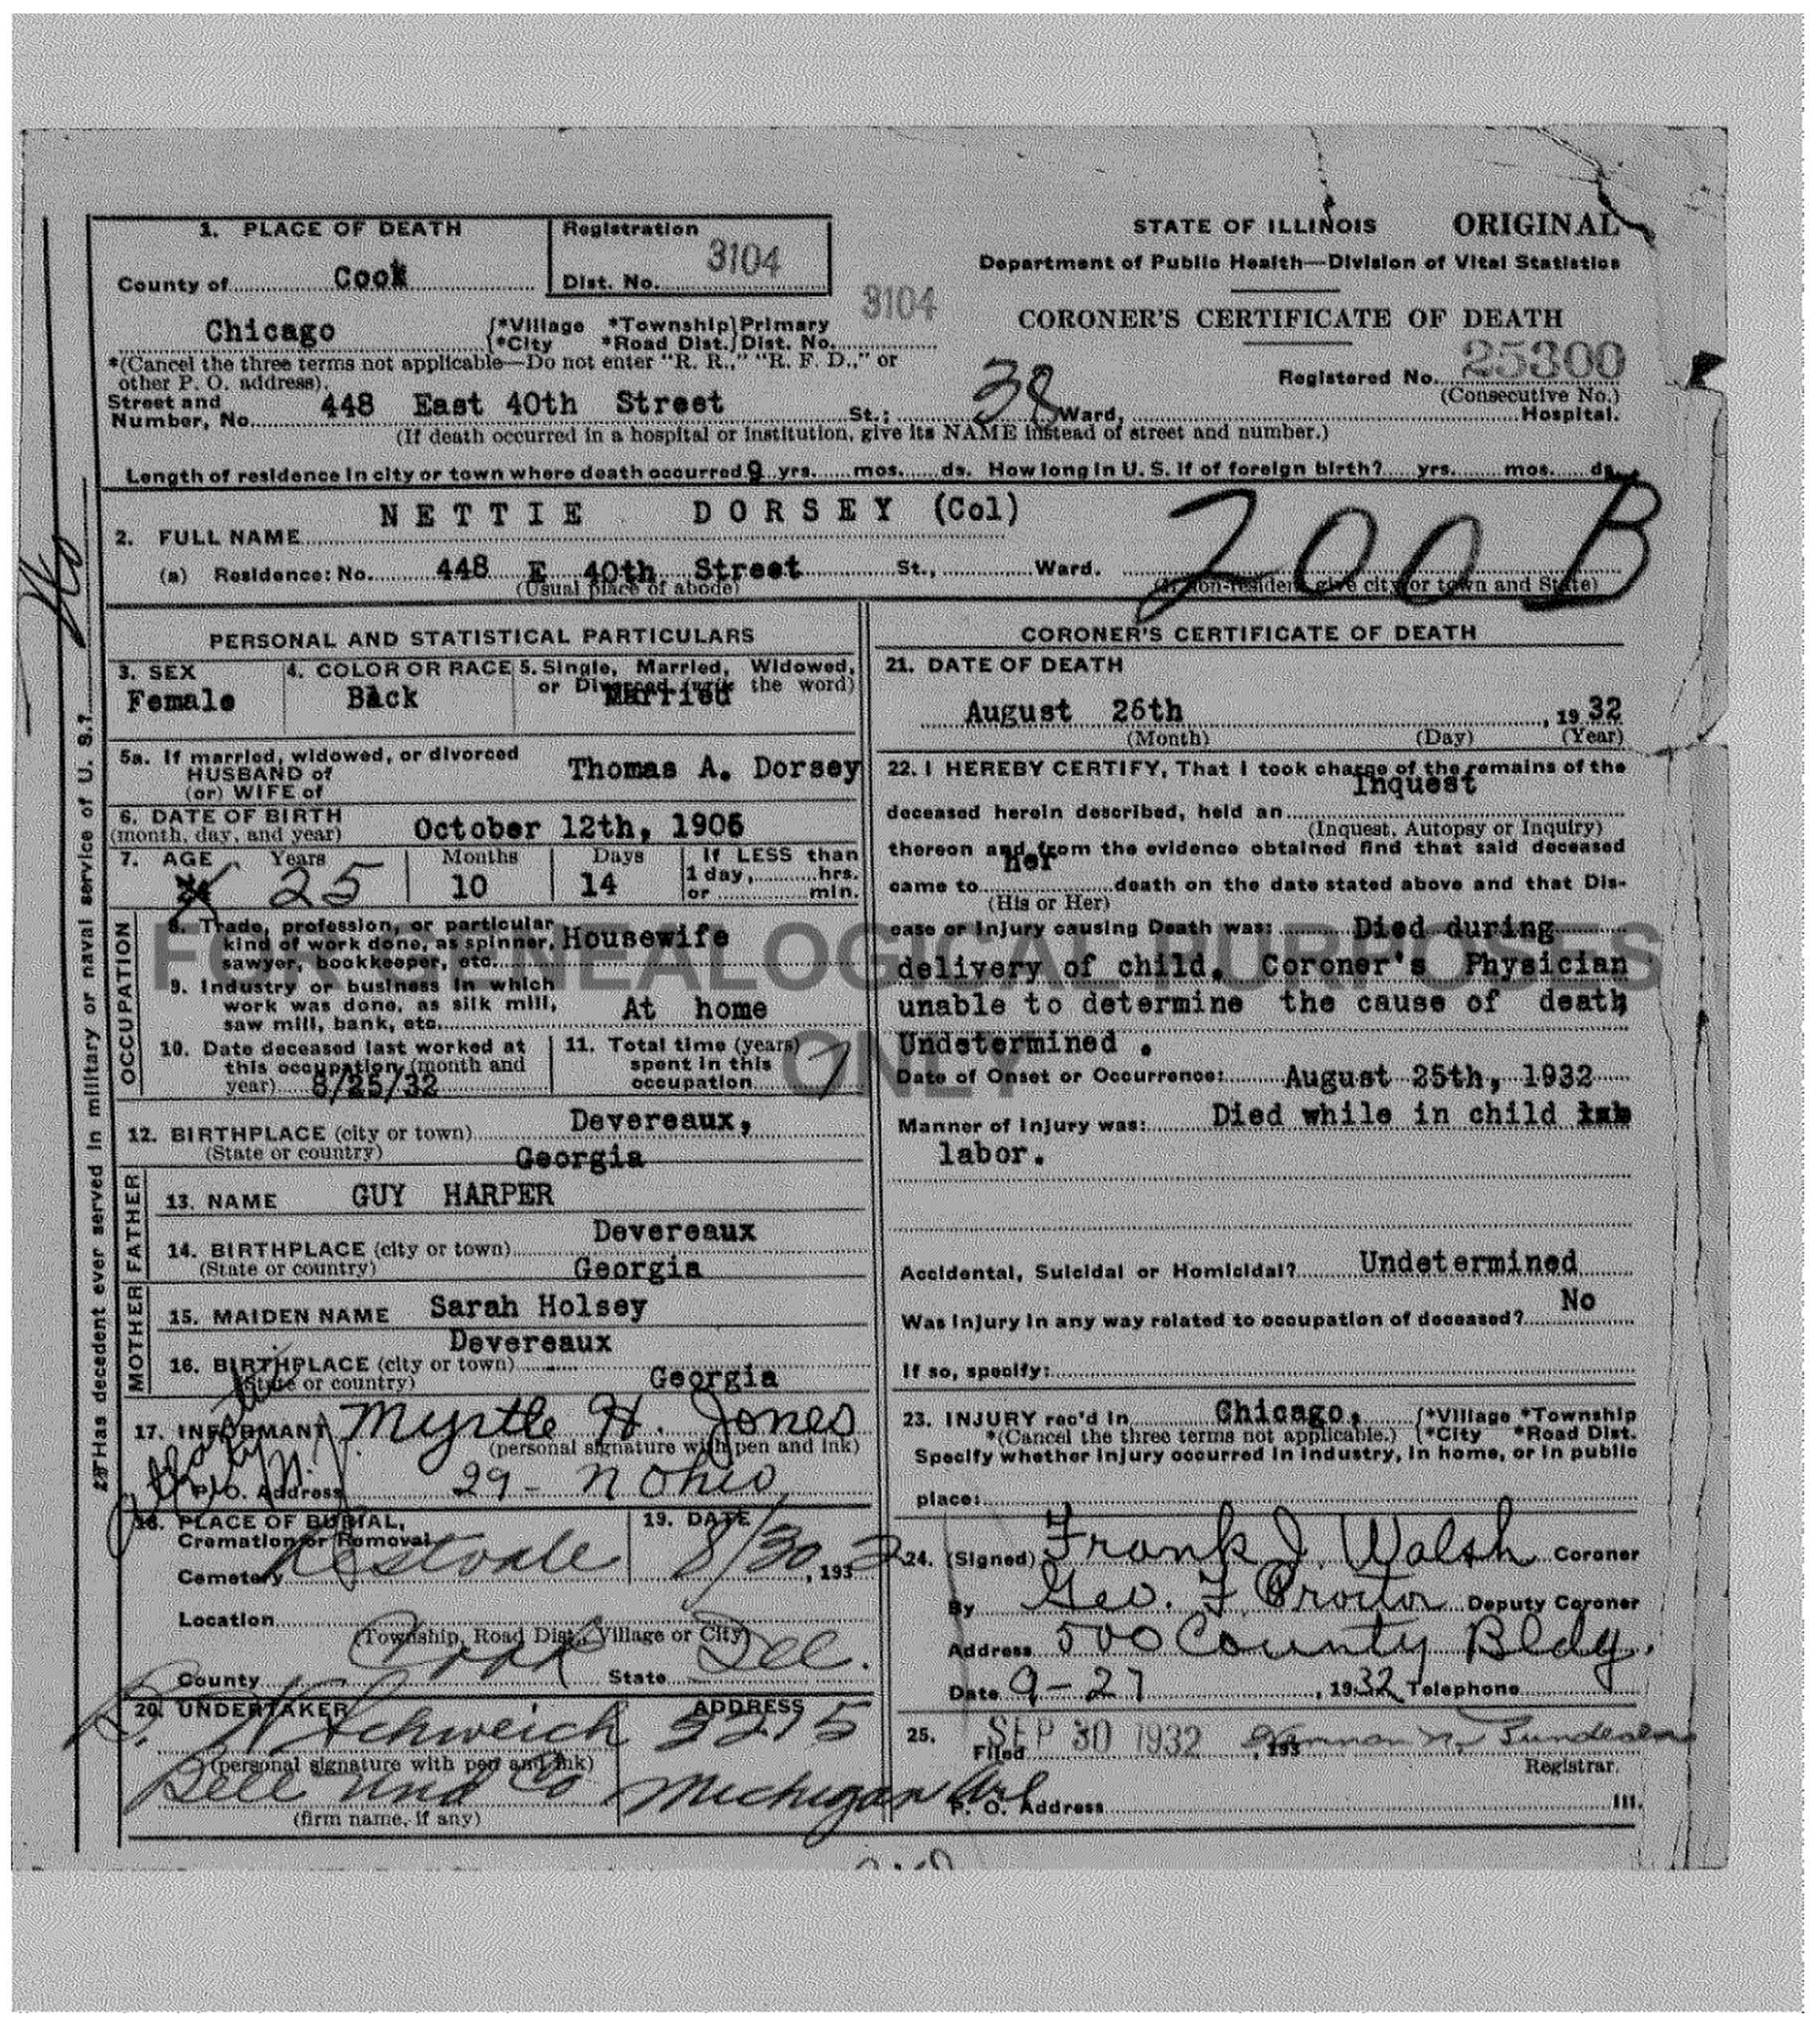 1. PLACE OF DEATH
Registration
Dist. No. 3104
County of Cook
3104
STATE OF ILLINOIS ORIGINAL
Department of Public Health—Division of Vital Statistics
CORONER'S CERTIFICATE OF DEATH
Registered No. 25300
(Consecutive No.)
Chicago {*Village *Township} Primary
*City *Road Dist.} Dist. No.
*(Cancel the three terms not applicable—Do not enter "R. R.," "R. F. D.," or
other P. O. address).
Street and
Number, No. 448 East 40th Street St.; 38 Ward, Hospital.
(If death occurred in a hospital or institution, give its NAME instead of street and number.)
Length of residence in city or town where death occurred 9 yrs. mos. ds. How long in U. S. if of foreign birth? yrs. mos. ds.
2. FULL NAME NETTIE DORSEY (Col)
200 B
(a) Residence: No. 448 E 40th Street St., Ward.
(Usual place of abode) (If non-resident give city or town and State)
PERSONAL AND STATISTICAL PARTICULARS
3. SEX
Female
4. COLOR OR RACE
Black
5. Single, Married, Widowed,
or Divorced (write the word)
Married
5a. If married, widowed, or divorced
HUSBAND of
(or) WIFE of
Thomas A. Dorsey
6. DATE OF BIRTH
(month, day, and year) October 12th, 1906
7. AGE Years Months Days If LESS than
25 10 14 1 day, hrs.
or min.
OCCUPATION
8. Trade, profession, or particular
kind of work done, as spinner, Housewife
sawyer, bookkeeper, etc.
9. Industry or business in which
work was done, as silk mill, At home
saw mill, bank, etc.
10. Date deceased last worked at
this occupation (month and
year) 8/25/32
11. Total time (years)
spent in this
occupation 7
12. BIRTHPLACE (city or town) Devereaux,
(State or country) Georgia
FATHER
13. NAME GUY HARPER
14. BIRTHPLACE (city or town) Devereaux
(State or country) Georgia
MOTHER
15. MAIDEN NAME Sarah Holsey
16. BIRTHPLACE (city or town) Devereaux
(State or country) Georgia
17. INFORMANT Myrtle H. Jones
(personal signature with pen and ink)
P. O. Address 29 - N Ohio
18. PLACE OF BURIAL,
Cremation or Removal
Cemetery Restvale
19. DATE
8/30, 1932
Location
(Township, Road Dist., Village or City)
County Cook State Ill.
20. UNDERTAKER ADDRESS
Schweich 3215
(personal signature with pen and ink)
Bell Und Co Michigan Ave
(firm name, if any)
Has decedent ever served in military or naval service of U. S.?
No
CORONER'S CERTIFICATE OF DEATH
21. DATE OF DEATH
August 26th, 1932
(Month) (Day) (Year)
22. I HEREBY CERTIFY, That I took charge of the remains of the
deceased herein described, held an Inquest
(Inquest, Autopsy or Inquiry)
thereon and from the evidence obtained find that said deceased
came to her death on the date stated above and that Dis-
(His or Her)
ease or Injury causing Death was: Died during
delivery of child. Coroner's Physician
unable to determine the cause of death
Undetermined .
Date of Onset or Occurrence: August 25th, 1932
Manner of Injury was: Died while in child
labor.
Accidental, Suicidal or Homicidal? Undetermined
Was injury in any way related to occupation of deceased? No
If so, specify:
23. INJURY rec'd in Chicago, {*Village *Township
*(Cancel the three terms not applicable.) {*City *Road Dist.
Specify whether injury occurred in industry, in home, or in public
place:
24. (Signed) Frank J. Walsh Coroner
By Geo. F. Proctor Deputy Coroner
Address 500 County Bldg.
Date 9-27, 1932 Telephone
25. Filed SEP 30 1932, 193 Herman N. Bundesen
Registrar.
P. O. Address Ill.
FOR GENEALOGICAL PURPOSES
ONLY